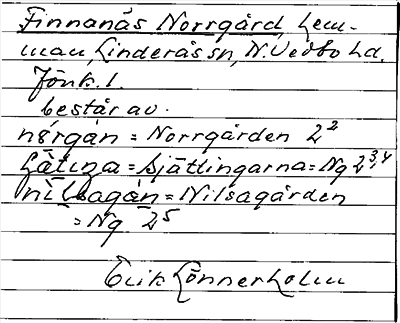 Finnanäs Norrgård, hem-
man, Linderås sn, N. Vedbo hd.
Jönk. l.
består av.
nórgàn = Norrgården 2²
= Sjätlingarna = Ng 2³,⁴
nìlsagán = Nilsagården
= Ng 2⁵
Erik Lönnerholm